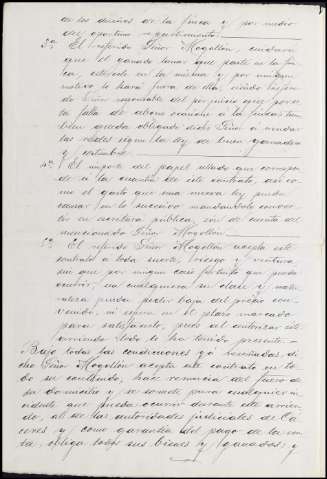 de los dueños de la finca y por medio
del oportuno requerimiento.
3ª El referido Señor Mogollón, cuidará
que el ganado lanar que paste en la fin-
ca, estercole en la misma y por ningun
motivo lo hará fuera de ella, siendo dicho
Señor responsable del perjuicio que por
la falta de abono ocasione a la finca; tam-
bien queda obligado dicho Señor a mudar
las redes segun la ley de buen ganadero
y costumbre.
4ª El importe del papel sellado que correspon-
de á la cuantia de este contrato, así co-
mo el gasto que una nueva ley pueda
causar en lo sucesivo mandándolo elevar
en escritura pública, son de cuenta del
mencionado Señor Mogollón.
5ª El referido Señor Mogollón acepta este
contrato a toda suerte, riesgo y ventura
sin que por ningun caso fortuito que pueda
ocurrir, sea cualquiera su clase y
naturaleza pueda pedir baja del precio con-
venido, ni espera en el plazo marcado
para satisfacerlo, pues al autorizar este
arriendo todo lo ha tenido presente.
Bajo todas las condiciones ya reseñadas di-
cho Señor Mogollón acepta este contrato en to-
do su contenido, hace renuncia del fuero de
su domicilio y se somete para cualquier in-
cidente que pueda ocurrir durante este arrien-
do, al de las autoridades judiciales de Cá-
ceres y como garantía del pago de la ren-
ta, obliga todos sus bienes y ganados; y